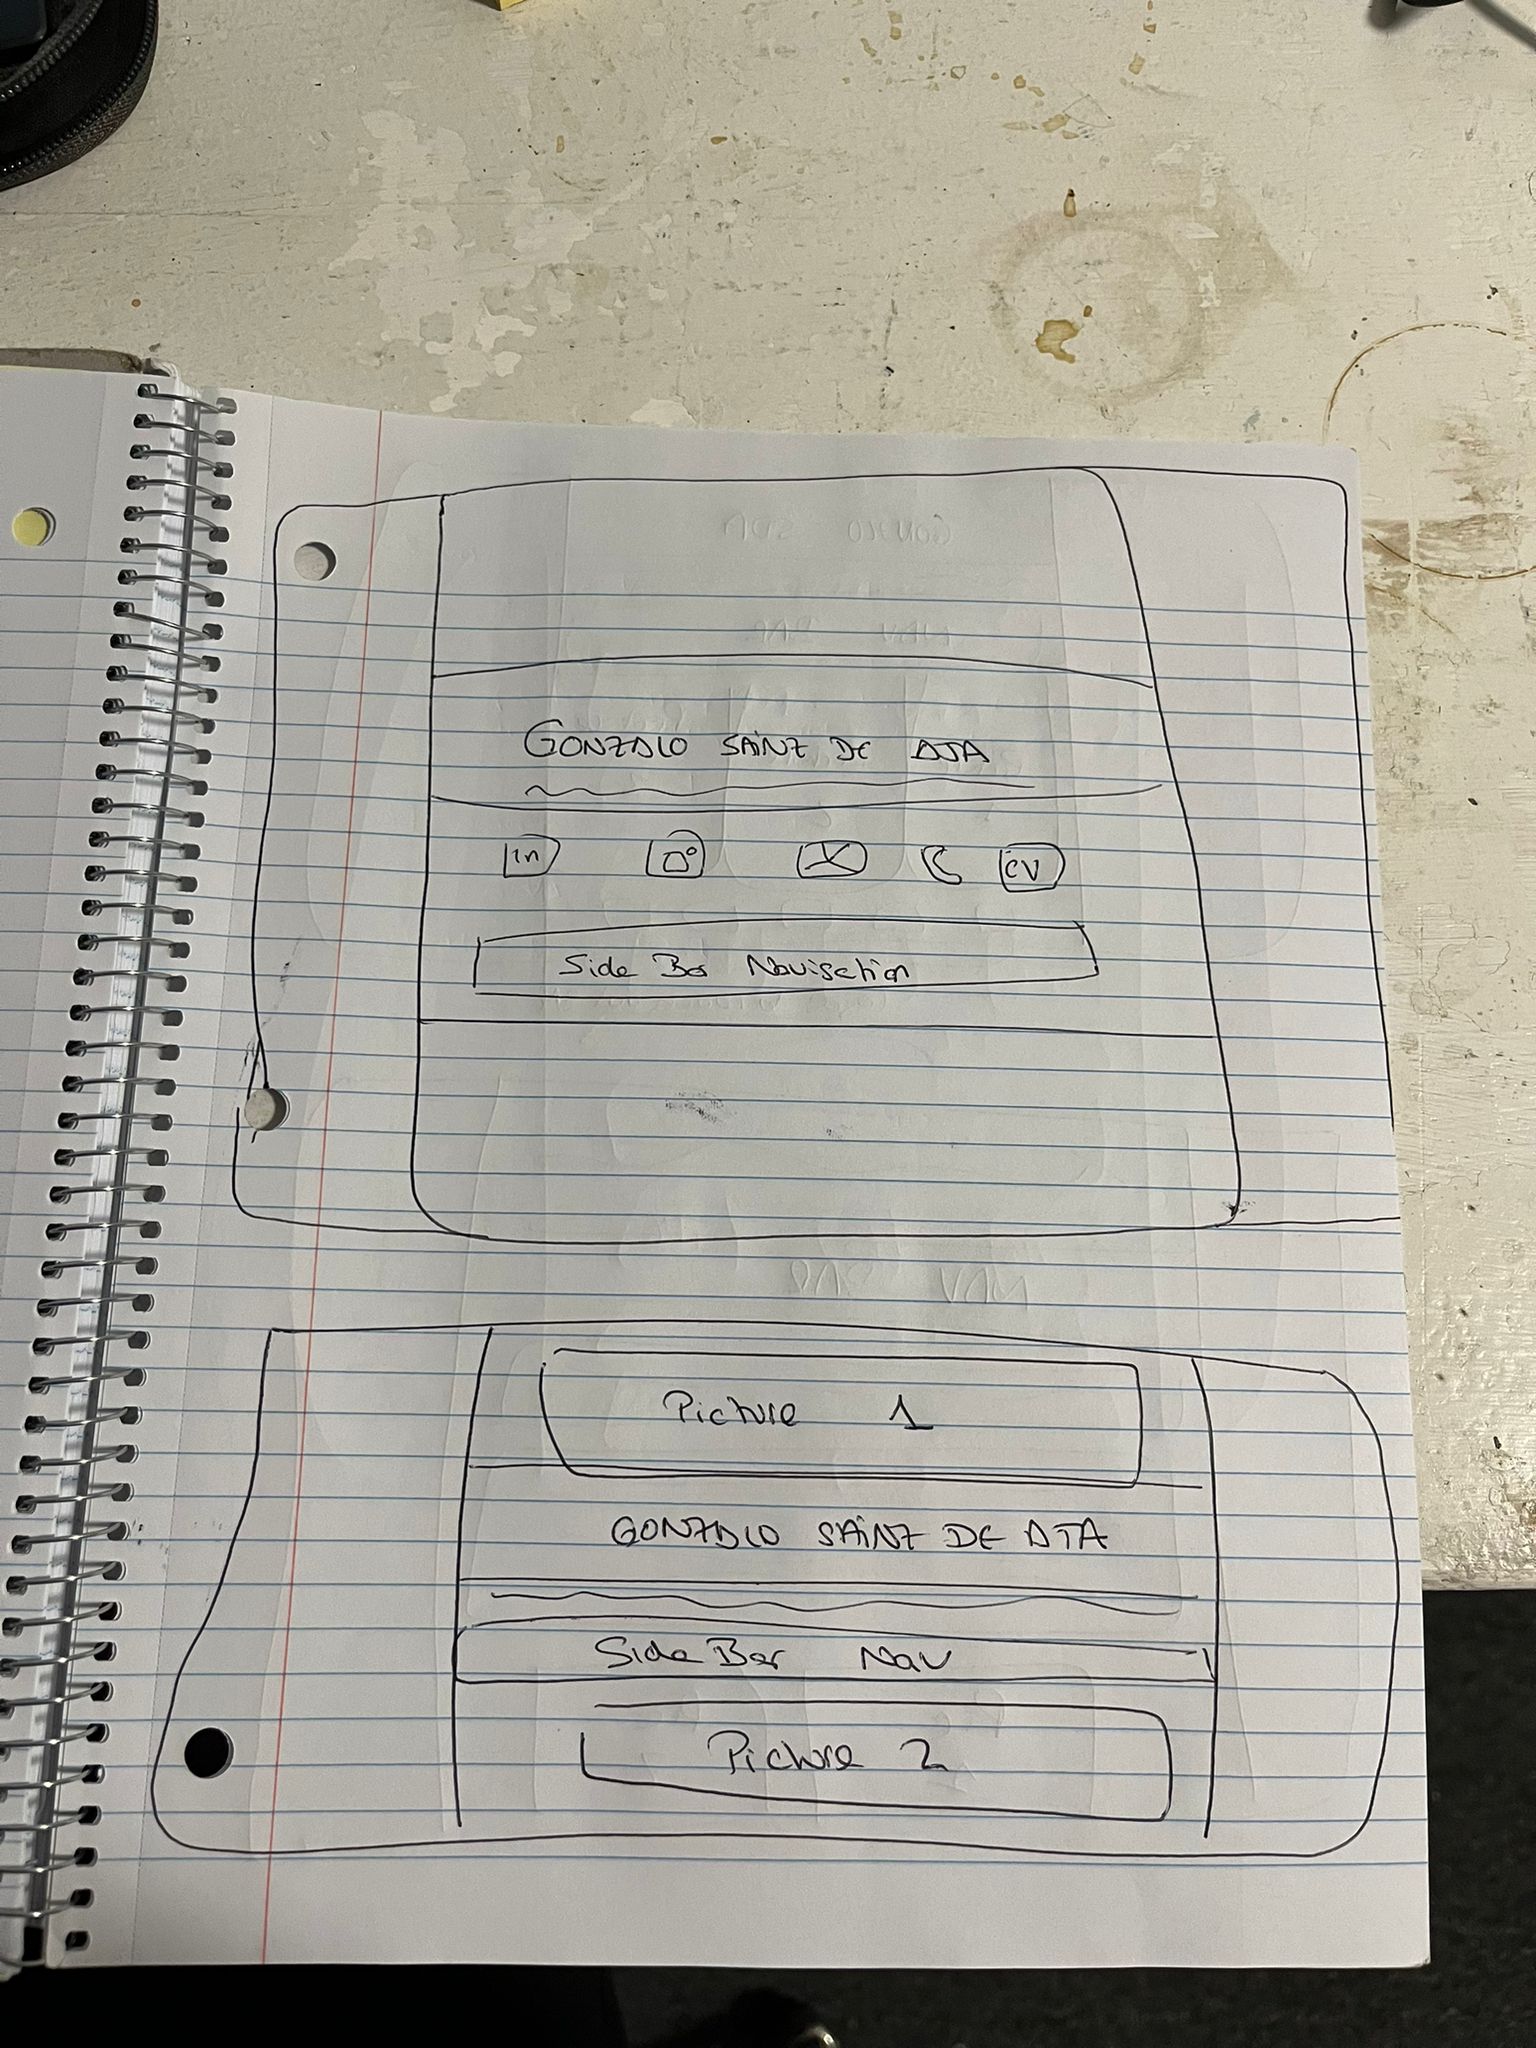 GONZALO SAINZ DE AJA
in
CV
Side Bar Navigation
Picture 1
GONZALO SAINZ DE AJA
Side Bar Nav
Picture 2